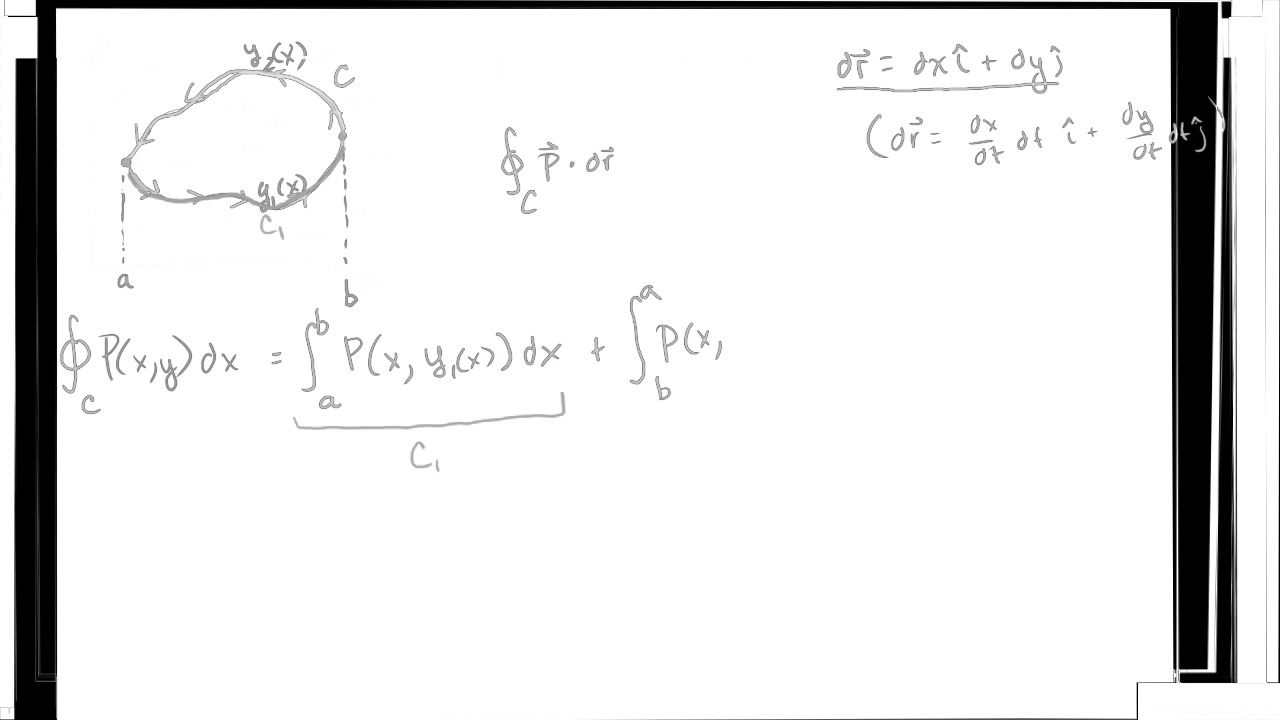 y₂(x)
C
y₁(x)
C₁
a
b
∮_C P⃗ · dr⃗
dr⃗ = dx î + dy ĵ
(dr⃗ = dx/dt dt î + dy/dt dt ĵ)
∮_C P(x,y) dx = ∫_a^b P(x, y₁(x)) dx + ∫_b^a P(x,
C₁